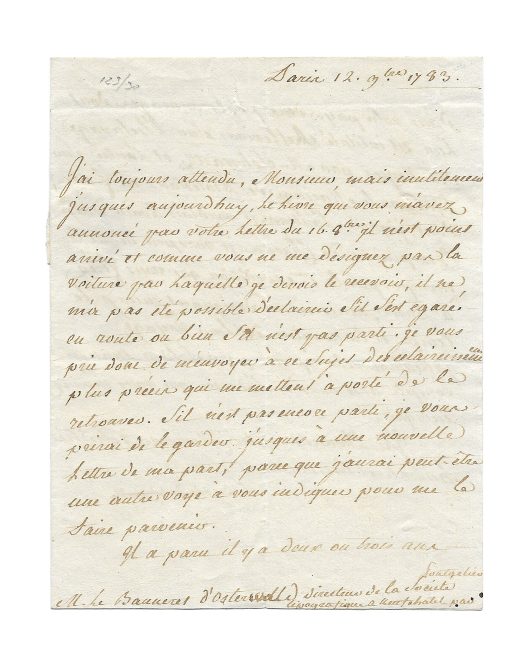 123/30
Paris 12. 9.bre 1783.
J'ai toujours attendu, Monsieur, mais inutilement
jusques aujourdhuy, le Livre que vous m'avez
annoncé par votre Lettre du 16 8bre il n'est point
arrivé et comme vous ne me désignez pas la
voiture par laquelle je devois le recevoir, il ne
m'a pas eté possible d'eclaircir S'il S'est egaré
en route ou bien S'il n'est pas parti. je vous
prie donc de m'envoyer à ce Sujet des eclaircissemens
plus precis qui me mettent a porté de le
retrouver. S'il n'est pas encore parti, je vous
prirai de le garder jusques à une nouvelle
Lettre de ma part, parce que j'aurai peut-être
une autre voye à vous indiquer pour me le
faire parvenir.
Il a paru il y a deux ou trois ans
pontarlier
M. le Banneret d'Osterwald directeur de la Société
typografique a neufchatel par